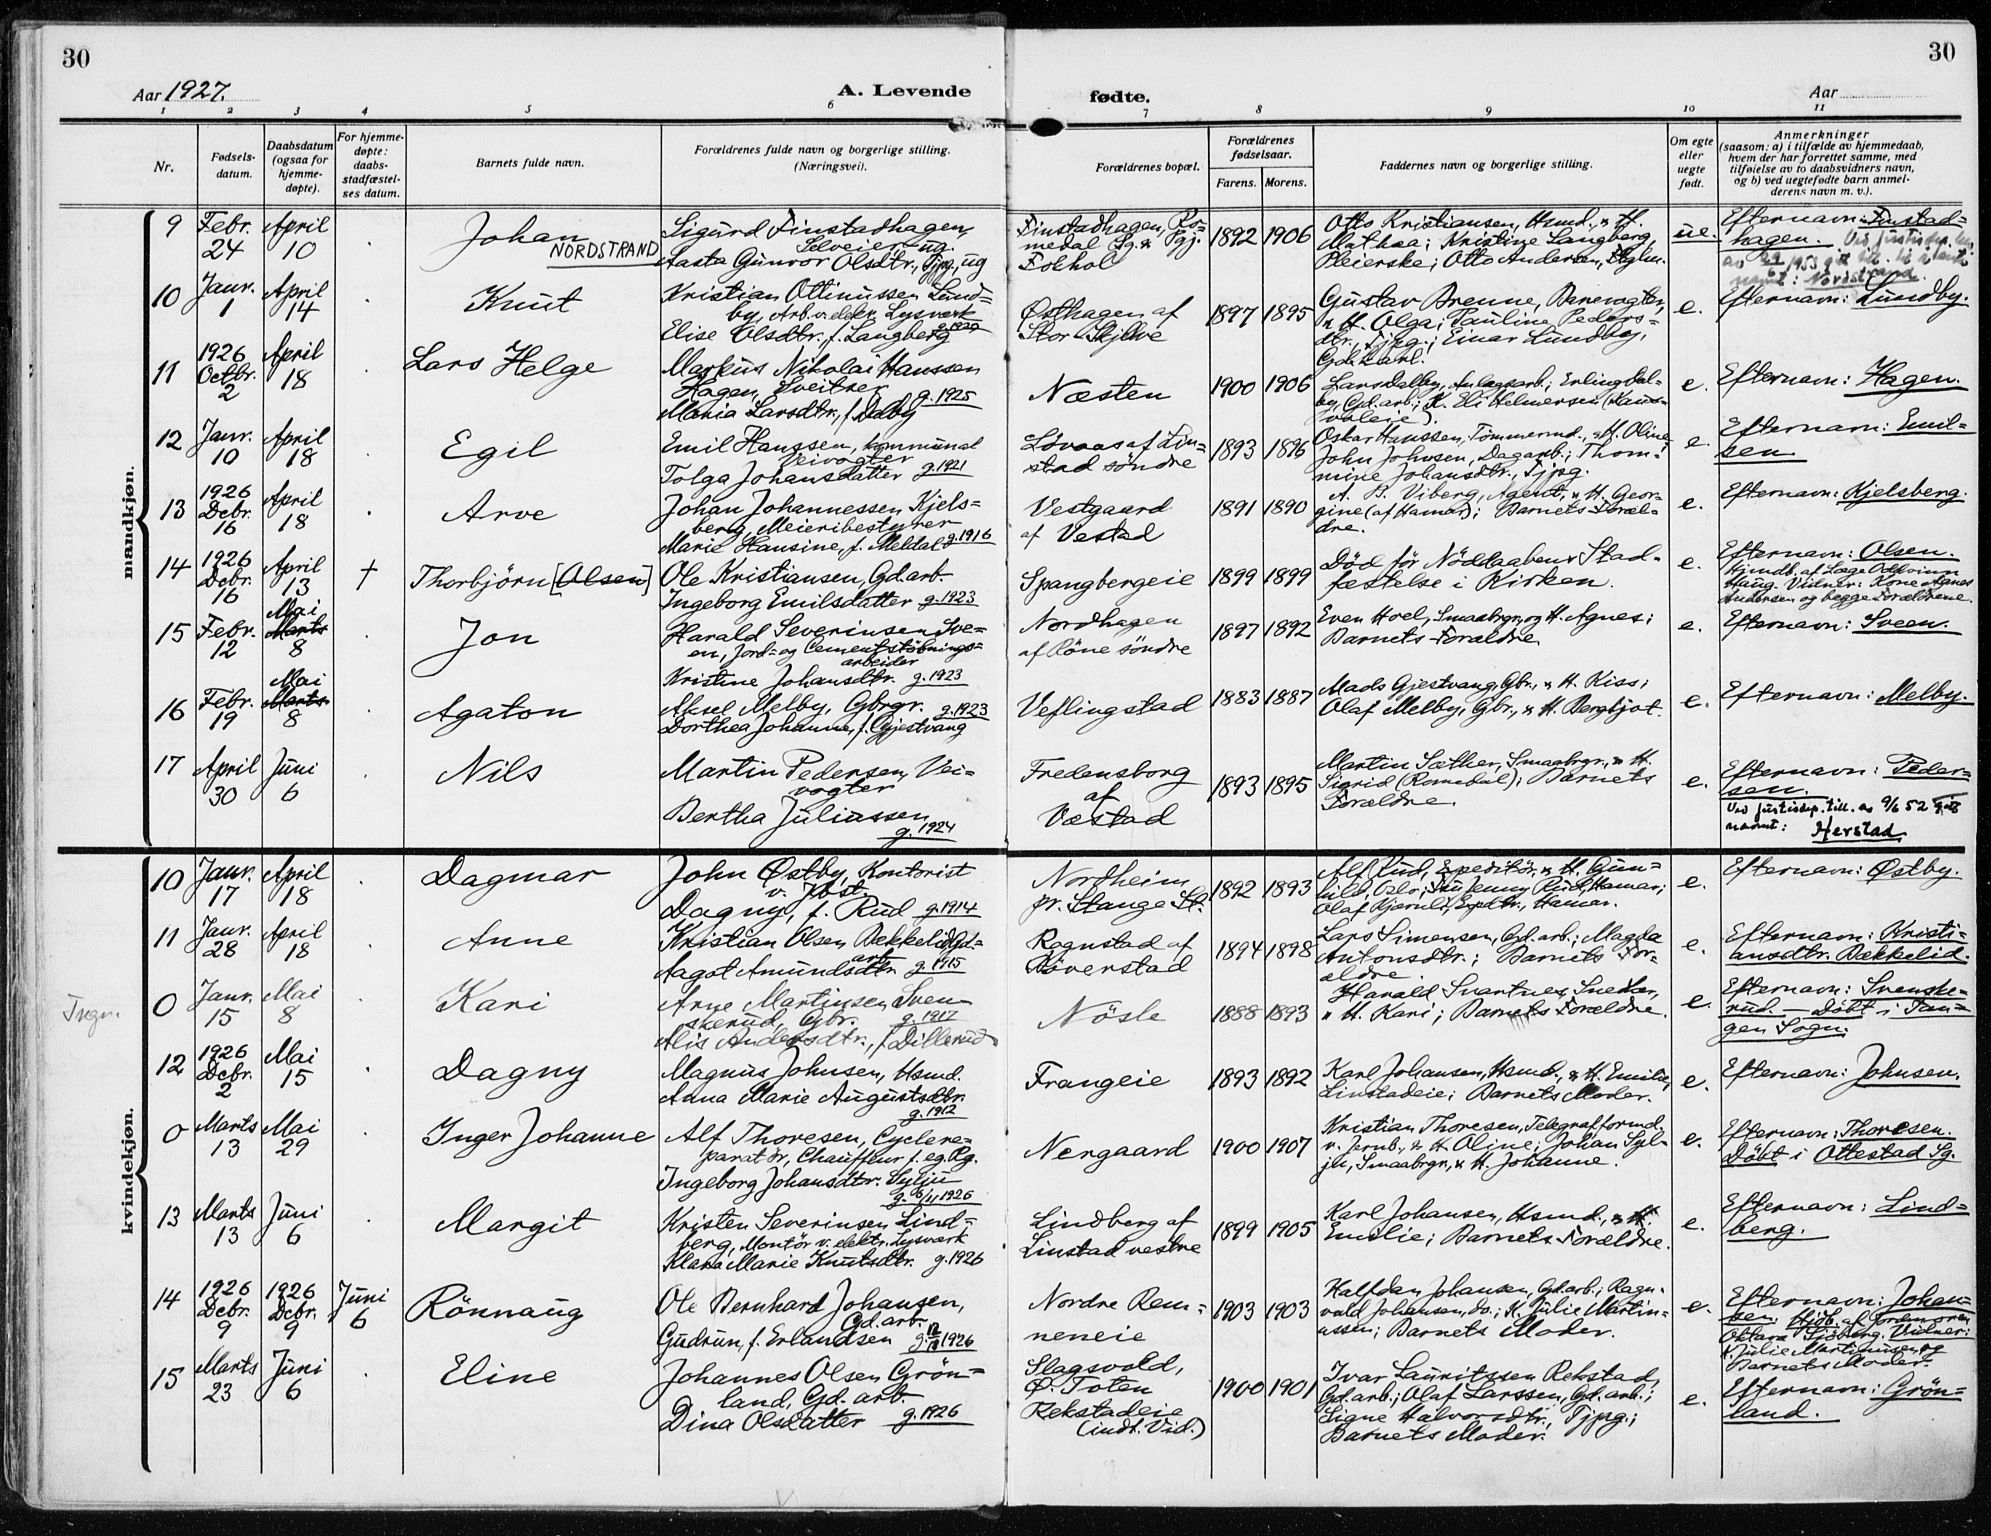 30
30
Aar 1927.
A. Levende
fødte.
Aar
1 2 3 4 5 6 7 8 9 10 11
Nr.
Fødsels-
datum.
Daabsdatum
(ogsaa for
hjemme-
døpte).
For hjemme-
døpte:
daabs-
stadfæstel-
ses datum.
Barnets fulde navn.
Forældrenes fulde navn og borgerlige stilling.
(Næringsvei).
Forældrenes bopæl.
Forældrenes
fødselsaar.
Farens. Morens.
Faddernes navn og borgerlige stilling.
Om egte
eller
uegte
født.
Anmerkninger
(saasom: a) i tilfælde av hjemmedaab,
hvem der har forrettet samme, med
tilføielse av to daabsvidners navn,
og b) ved uegtefødte barn anmel-
derens navn m. v.).
mandkjøn.
9
Febr.
24
April
10
Johan
NORDSTRAND
Sigurd Finstadhagen,
Selveier ug.
Aasta Gunvor Olsdtr., Tjpg., ug
Finstadhagen, Ro-
medal Sg. & Pgj.
1892 1906
Otto Kristiansen, Hsmd., & H.
Mathea; Kristine Langberg,
Pleierske; Otto Andersen,
ue.
Efternavn: Finstad-
hagen.
Nordstrand.
10
Janr.
1
April
14
Knut
Kristian Ottinussen Lund-
by, Arb. v. elektr. Lysværk
Elise Olsdtr., f. Langberg
Østhagen af
Stor-Skjelve
1897 1895
Gustav Brenne, Banevogter,
& H. Olga; Pauline Peders-
dtr., Tjpg.; Einar Lundby,
Gd. Karl.
e.
Efternavn: Lundby.
11
1926
Octbr.
2
April
18
Lars Helge
Markus Nikolai Hanssen
Hagen, Sveitser
g. 1925
Maria Larsdtr., f. Dalby
Næsten
1900 1906
Lars Dalby, Anlægsarb.; Erling Dal-
by, Gd. arb.; K. Eli Helmersen
e.
Efternavn: Hagen.
12
Janr.
10
April
18
Egil
Emil Hanssen, kommunal
Veivogter
Tolga Johansdatter g. 1921
Lövaas af Lin-
stad søndre
1893 1896
Oskar Hanssen, Tømmermd., & H. Oline;
John Johnsen, Dagarb.; Thom-
mine Johansdtr., Tjpg.
e.
Efternavn: Emil-
sen
13
1926
Debr.
16
April
18
Arve
Johan Johannessen Kjels-
berg, Meieribestyrer
Marie Hansine, f. Meldal g. 1916
Vestgaard
af Vestad
1891 1890
A. T. Viberg, Agent, & H. Geor-
gine (af Hamar); Barnets Foræl-
dre.
e.
Efternavn: Kjelsberg.
14
1926
Debr.
16
April
13
†
Thorbjörn [Olsen]
Ole Kristiansen, Gd. arb.
Ingeborg Emilsdatter g. 1923
Spangbergeie
1899 1899
Död för Nöddaabens Stad-
fæstelse i Kirken.
e.
Efternavn: Olsen.
Hjmdb. af Læge Oddvinn
Haug. Vidner: Kone Agnes
Andersen og begge Forældrene.
15
Febr.
12
Mai
Marts
8
Jon
Harald Severinsen Sve-
en, Jord- og Cementstøbnings-
arbeider
Kristine Johansdtr. g. 1923
Nordhagen
af Röne søndre
1897 1892
Even Hoel, Smaabrgr, og H. Agnes;
Barnets Forældre.
e.
Efternavn: Sveen.
16
Febr.
19
Mai
Marts
8
Agaton
Aksel Melby, Gbrgr. g. 1923
Dorthea Johanne, f. Gjestvang
Veflingstad
1883 1887
Mads Gjestvang, Gbr., & H. Kiss;
Olaf Melby, Gbr., & H. Bergljot.
e.
Efternavn: Melby.
17
April
30
Juni
6
Nils
Martin Pedersen, Vei-
vogter
Bertha Juliussen
g. 1924
Fredensborg
af
Væstad
1893 1895
Martin Sæther, Smaabrgr., & H.
Sigrid (Romedal); Barnets
Forældre.
e.
Efternavn: Peder-
sen.
Ved justisdep. till. av 9/6 52 gitt
navnet: Herstad
kvindekjøn.
10
Janr.
17
April
18
Dagmar
John Østby, Kontorist
v. Jbst.
Dagny, f. Rud g. 1914
Nordheim
pr. Stange St.
1892 1893
Alf Rud, Expeditör, & H. Gun-
hild, Oslo; Fru Jenny Rud, Hamar;
Olaf Bjernli, Expdtr., Hamar.
e.
Efternavn: Østby.
11
Janr.
28
April
18
Anne
Kristian Olsen Bækkelid, Gd.-
arb.
Aagot Amundsdtr. g. 1915
Rognstad af
Röverstad
1894 1898
Lars Simensen, Gd. arb.; Magda
Antonsdtr.; Barnets For-
ældre.
e.
Efternavn: Kristi-
ansdtr. Bækkelid.
Tngn.
0
Janr.
15
Mai
8
Kari
Arne Martinsen Sven-
skerud, Gbr. g. 1917
Alis Andersdtr., f. Dillerud
Nösle
1888 1893
Harald Svartnes, Snedker,
& H. Kari; Barnets Forældre.
e.
Efternavn: Svenske-
rud. — Döbt i Tan-
gen Sogn.
12
1926
Debr.
2
Mai
15
Dagny
Magnus Johnsen, Hsmd.
Anna Marie Augustsdtr.
g. 1912
Frangeie
1893 1892
Karl Johansen, Hsmd., & H. Emilie,
Linstadeie; Barnets Moder.
e.
Efternavn: Johnsen.
0
Marts
13
Mai
29
Inger Johanne
Alf Thoresen, Cyclere-
paratör, Chauffeur f. eg. Rg.
Ingeborg Johansdtr. Sylju
g. 6/11 1926
Nergaard
1900 1907
Kristian Thoresen, Telegrafformd.
v. Jernb., & H. Oline; Johan Syl-
ju, Smaabrgr, & H. Johanne.
e.
Efternavn: Thoresen.
Döbt i Ottestad Sg.
13
Marts
13
Juni
6
Margit
Kristen Severinsen Lind-
berg, Montör v. elektr. Lysværk
Klara Marie Knutsdtr. g. 1926
Lindberg af
Linstad vestre
1899 1905
Karl Johansen, Hsmd., & H.
Emilie; Barnets Forældre.
e.
Efternavn: Lind-
berg.
14
1926
Debr.
9
1926
Debr.
9
Juni
6
Rönnaug
Ole Bernhard Johansen,
Gd. arb.
Gudrun, f. Erlandsen
Nordre Rem-
neneie
1903 1903
Halfdan Johansen, Gd. arb.; Ragn-
vald Johansen, do.; K. Julie Martin-
ussen; Barnets Moder.
e.
Efternavn: Johan-
sen. Hjdb. af Jordmoren
Oktava Sjöberg. Vidner:
K. Julie Martinussen og
Barnets Moder.
15
Marts
23
Juni
6
Eline
Johannes Olsen Grön-
land, Gd. arb.
Dina Olsdatter g. 1926
Slagsvold,
Ø. Toten
Rekstadeie
(indt. Vid.)
1900 1901
Ivar Lauritssen Rekstad,
Gd. arb.; Olaf Larssen, Gd. arb.;
Signe Halvorsdtr., Tjpg.;
Barnets Moder.
e.
Efternavn: Grön-
land.